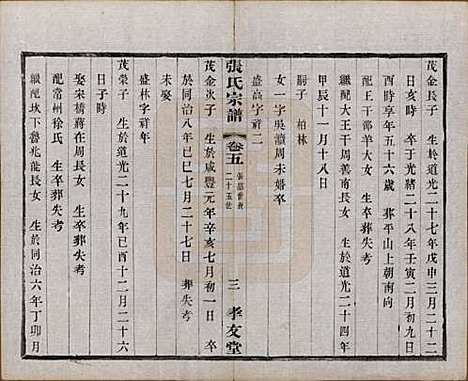 茂金長子　生於道光二十七年戊申三月二十二
日亥時　卒于光緒二十八年壬寅二月初九日
酉時享年五十六歲　葬平山上朝南向
配王干部羊大女　生卒葬失考
繼配大王干周善南長女　生於道光二十四年
甲辰十一月十八日
嗣子　柏林
女一字吳瀆周未婚卒
盛高字祥二
張氏宗譜
卷五
二十五世
三
孝友堂
茂金次子　生於咸豐元年辛亥七月初一日　卒
於同治八年己巳七月二十七日　葬失考
未娶
盛林字祥年
茂榮子　生於道光二十九年己酉十二月二十六
日子時
娶宋橋蔣在周長女　生卒葬失考
配常州徐氏　生卒葬失考
繼配坎下魯兆龍長女　生於同治六年丁卯月